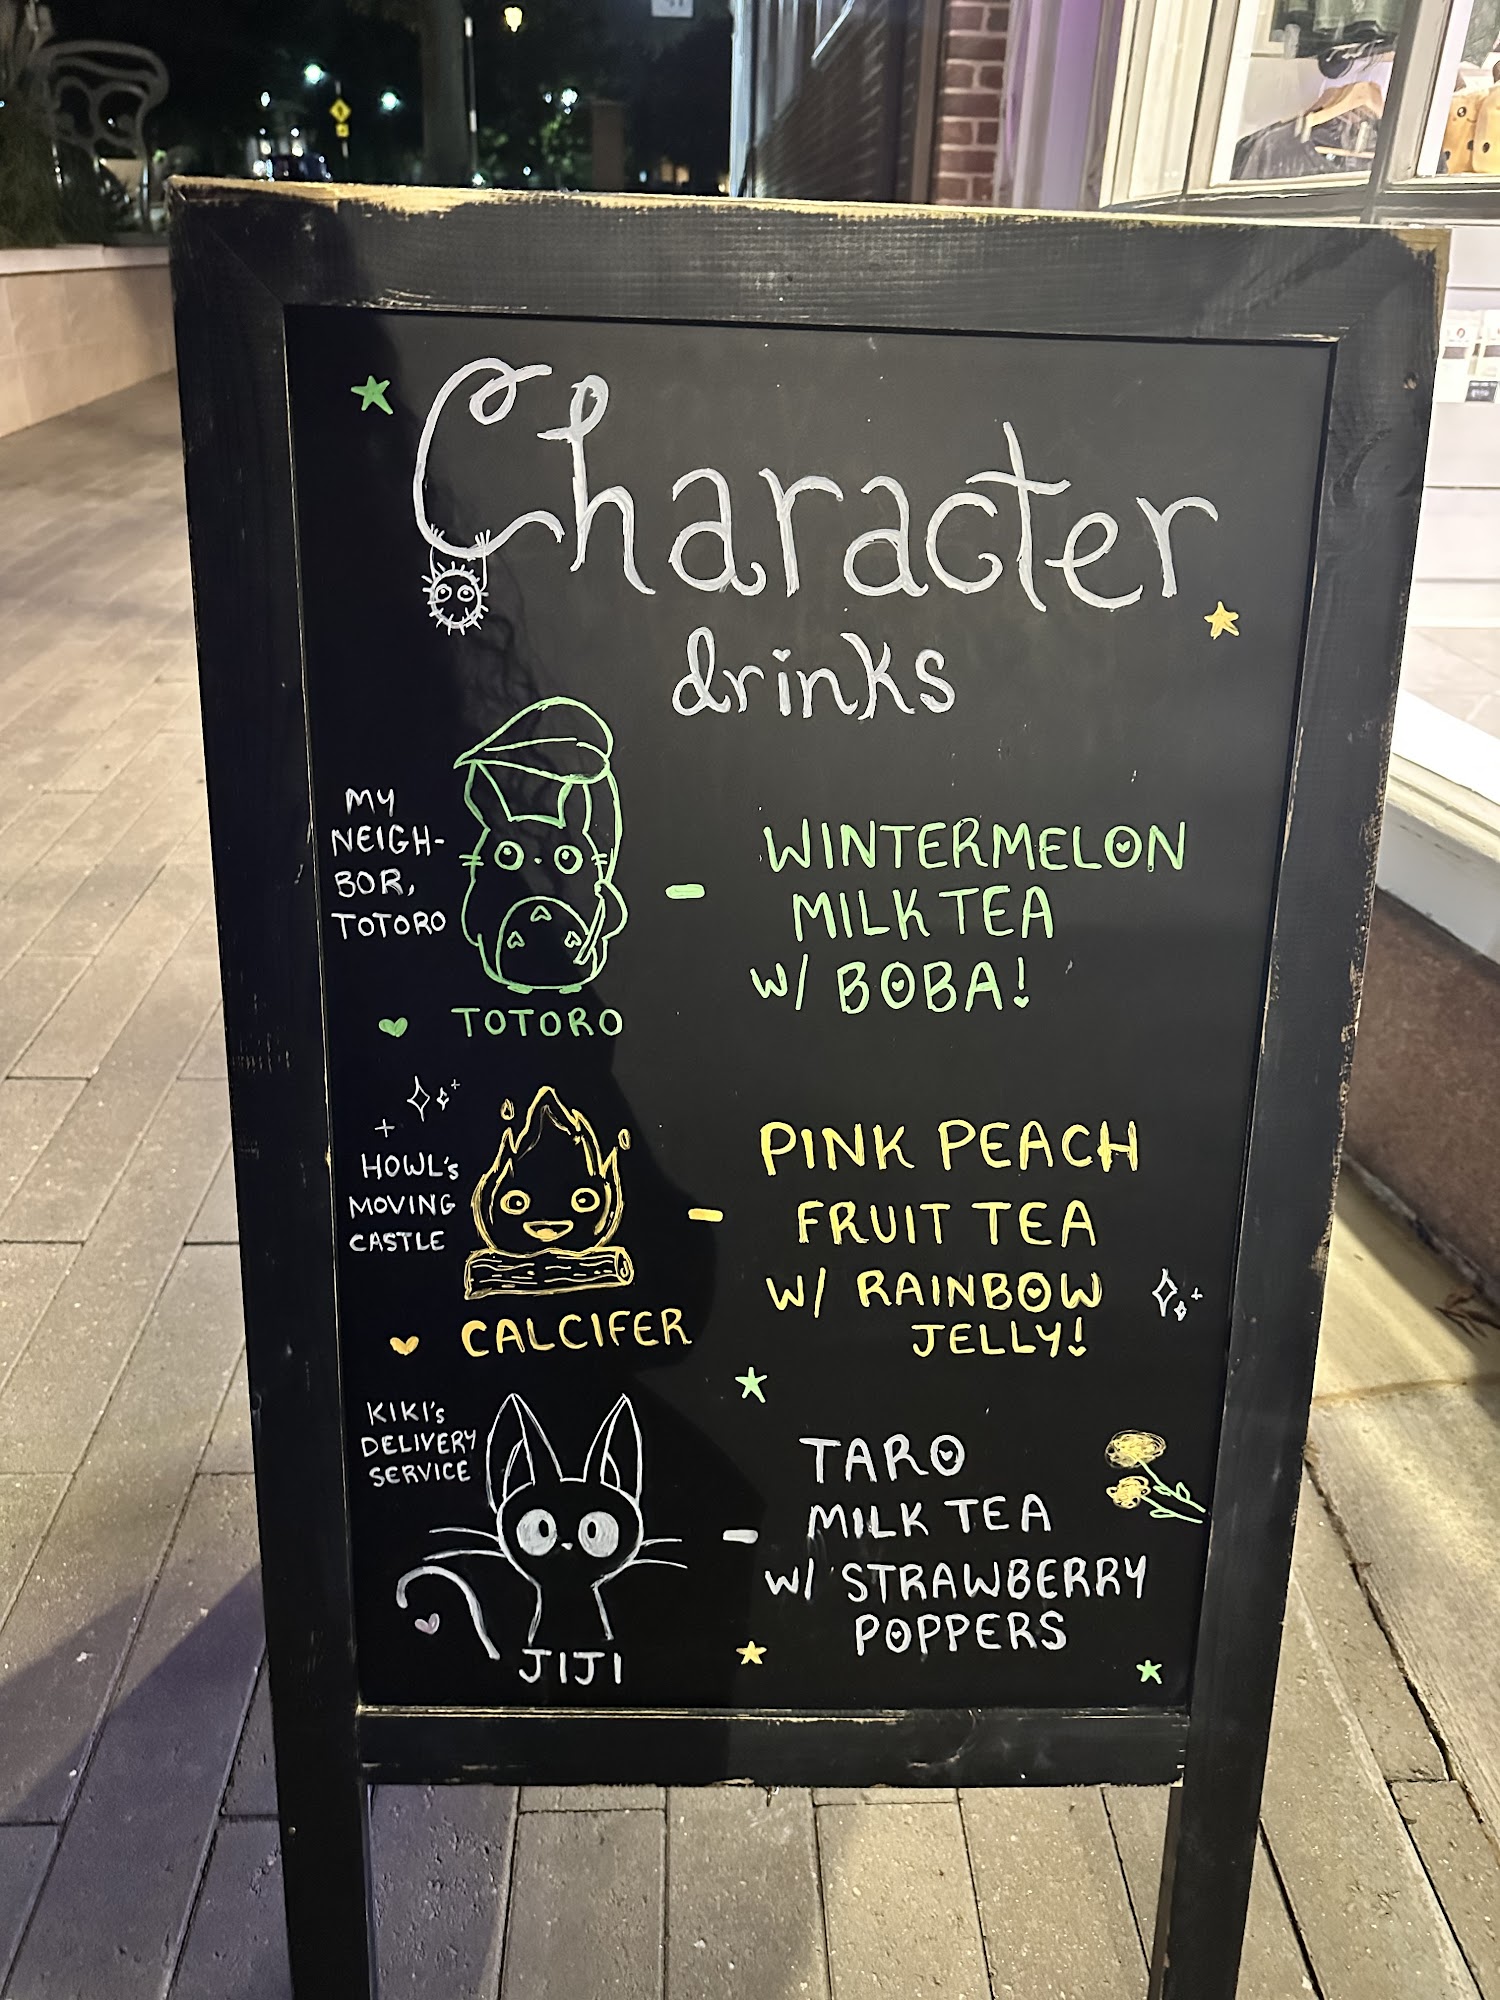 Character
drinks
MY
NEIGH-
BOR,
TOTORO
TOTORO
- WINTERMELON
MILK TEA
W/ BOBA!
HOWL's
MOVING
CASTLE
CALCIFER
- PINK PEACH
FRUIT TEA
W/ RAINBOW
JELLY!
KIKI's
DELIVERY
SERVICE
JIJI
- TARO
MILK TEA
W/ STRAWBERRY
POPPERS